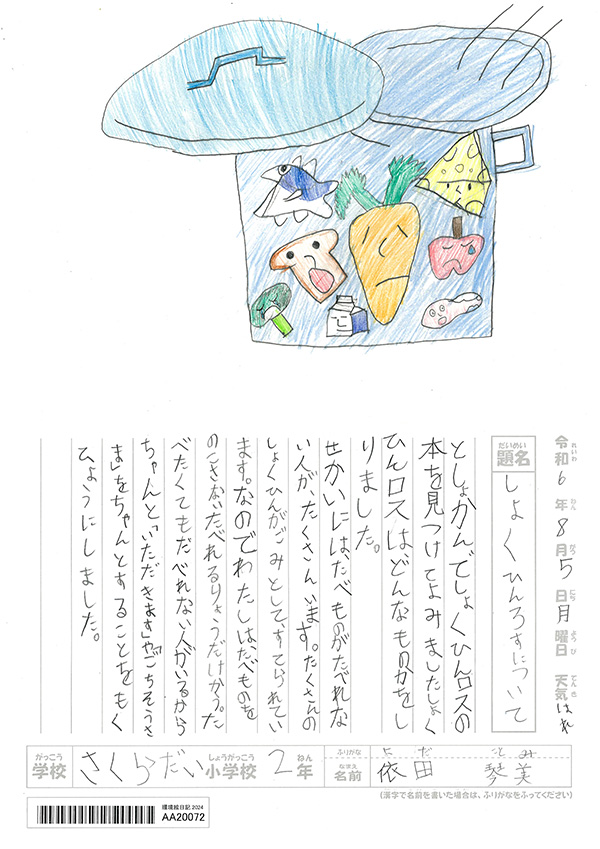 令和6年8月5日月曜日 天気はれ
れいわ ねん がつ にち ようび てんき
だいめい
題名 しょくひんろすについて
としょかんでしょくひんロスの
本を見つけてよみましたしょく
ひんロスはどんなものかをし
りました。
せかいには、たべものがたべれな
い人が、たくさんいます。たくさんの
しょくひんがごみとして、すてられてい
ます。なのでわたしは、たべものを
のこさない、たべれるりょうだけかう。た
べたくてもだべれない人がいるから
ちゃんと「いただきます」や「ごちそうさ
ま」をちゃんとすることをもく
ひょうにしました。
がっこう しょうがっこう ねん ふりがな よだ ことみ
学校 さくらだい小学校 2年 なまえ 名前 依田 琴美
(漢字で名前を書いた場合は、ふりがなをふってください)
環境絵日記 2024
AA20072